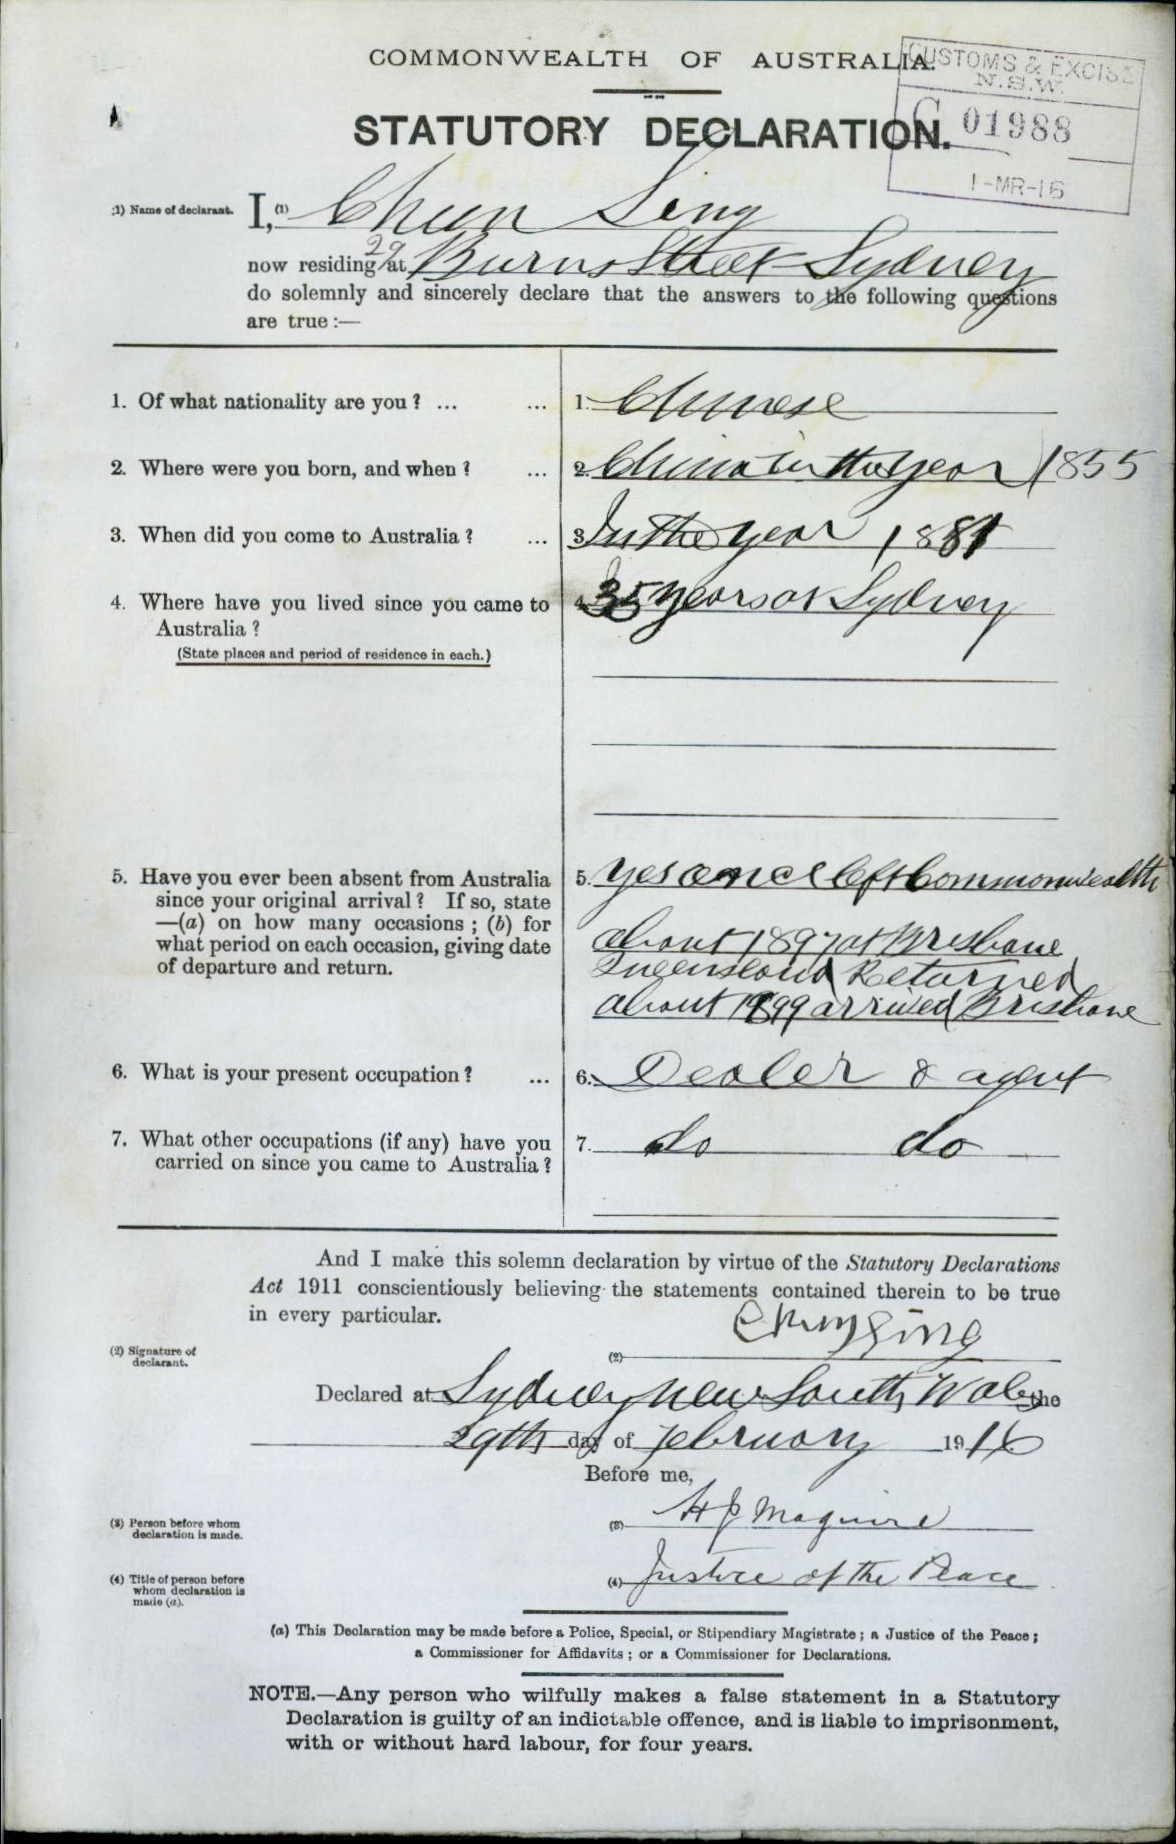 COMMONWEALTH OF AUSTRALIA.
CUSTOMS & EXCISE
N.S.W.
C 01988
1-MR-16
STATUTORY DECLARATION.
(1) Name of declarant.
I, (1) Chun Sing
now residing at 29 Burns Street Sydney
do solemnly and sincerely declare that the answers to the following questions
are true :—
1. Of what nationality are you ? ... ... 1. Chinese
2. Where were you born, and when ? ... 2. China in the year 1855
3. When did you come to Australia ? ... 3. In the year 1881
4. Where have you lived since you came to 4. 35 years at Sydney
Australia ?
(State places and period of residence in each.)
5. Have you ever been absent from Australia 5. yes once left Commonwealth
since your original arrival ? If so, state
—(a) on how many occasions ; (b) for about 1897 at Brisbane
what period on each occasion, giving date
of departure and return. Queensland Returned
about 1899 arrived Brisbane
6. What is your present occupation ? ... 6. Dealer & agent
7. What other occupations (if any) have you 7. do do
carried on since you came to Australia ?
And I make this solemn declaration by virtue of the Statutory Declarations
Act 1911 conscientiously believing the statements contained therein to be true
in every particular.
(2) Signature of
declarant.
(2) Sing
Declared at Sydney New South Wales the
29th day of February 1916
Before me,
(3) Person before whom
declaration is made.
(3) H J Maguire
(4) Title of person before
whom declaration is
made (a).
(4) Justice of the Peace
(a) This Declaration may be made before a Police, Special, or Stipendiary Magistrate ; a Justice of the Peace ;
a Commissioner for Affidavits ; or a Commissioner for Declarations.
NOTE.—Any person who wilfully makes a false statement in a Statutory
Declaration is guilty of an indictable offence, and is liable to imprisonment,
with or without hard labour, for four years.